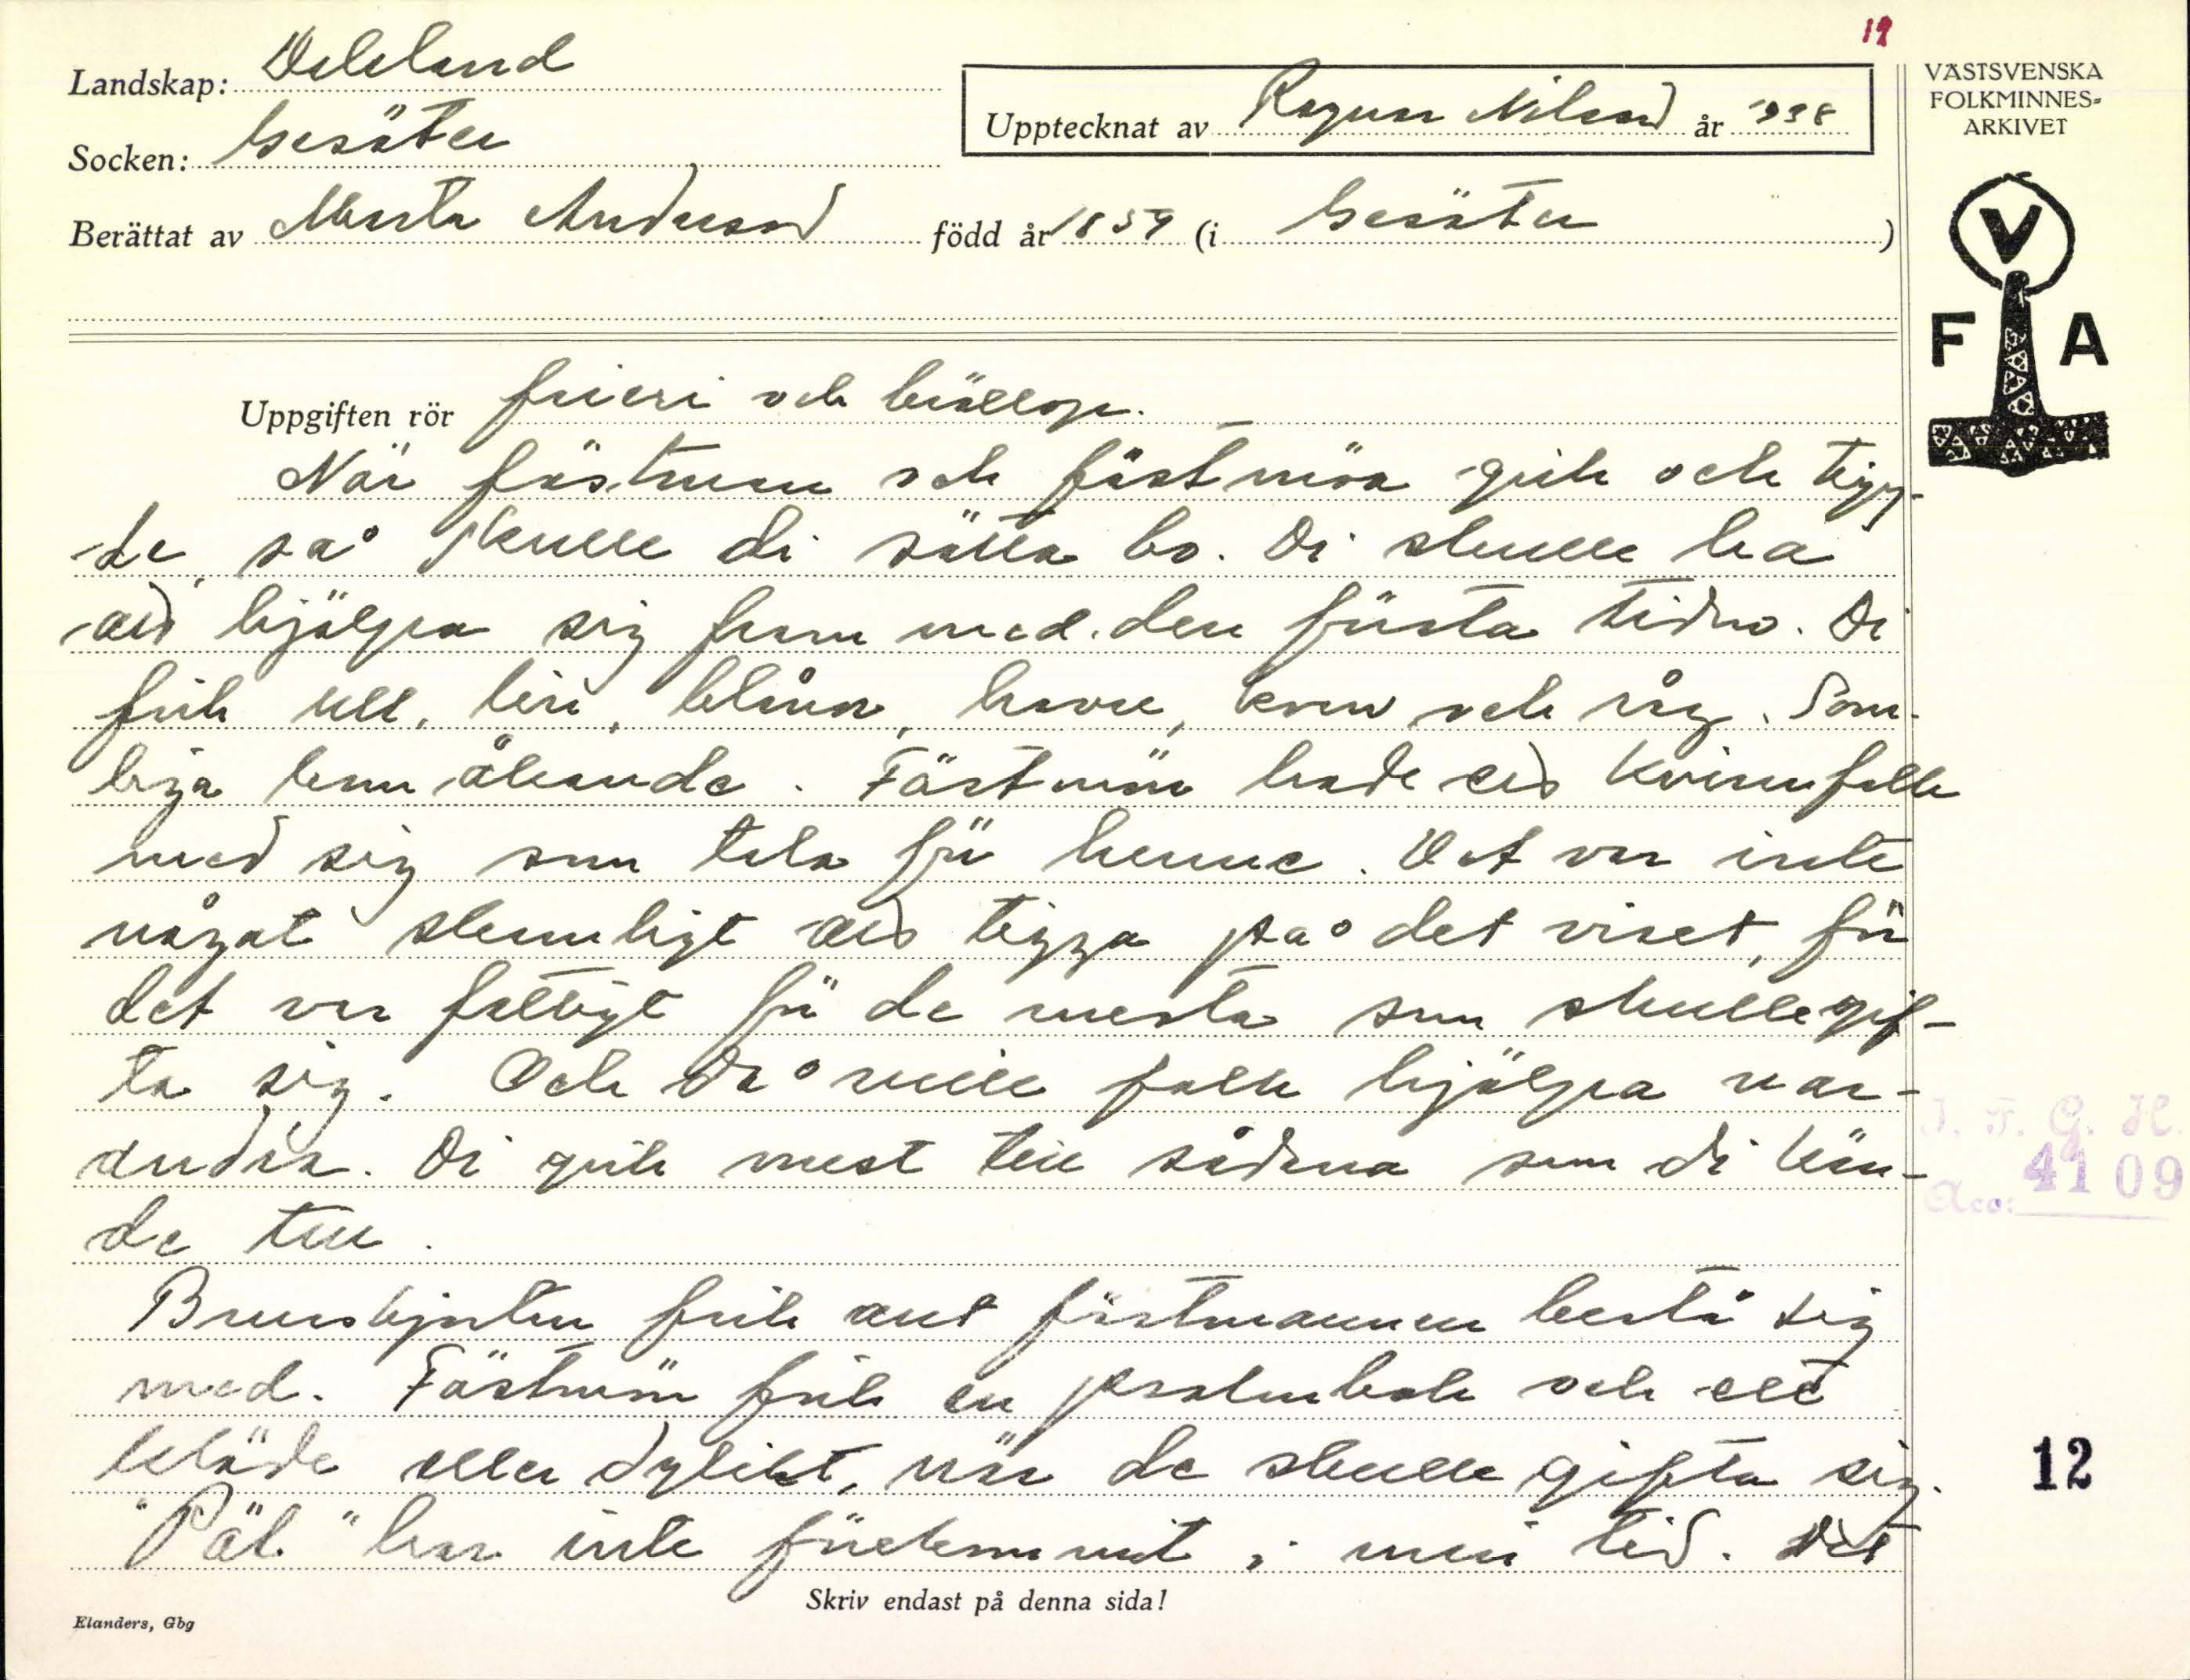 19
Landskap: Dalsland
Socken: Gesäter
Upptecknat av Ragnar Nilsson år 1938
Berättat av Marta Andersson född år 1859 (i Gesäter)
VÄSTSVENSKA
FOLKMINNES-
ARKIVET
V
F A
Uppgiften rör frieri och bröllop.
När fästman och fästmöa gick och tigg-
de, så skulle di sätta bo. Di skulle ha
att hjälpa sig fram med den första tiden. Di
fick ull, lin, blånor, havre, korn och råg. Som-
liga kom åkande. Fästmön hade ett kvinnfolk
med sig som tala för henne. Det var inte
något skamligt att tigga på det viset, för
det var fattigt för de mesta som skulle gif-
ta sig. Och då ville folk hjälpa var-
andra. Di gick mest till sådana som di kän-
de till.
Brudskjortan fick ant fästmannen bestå sig
med. Fästmön fick en psalmbok och ett
kläde eller dylikt, när de skulle gifta sig.
"Päl" har inte förekommit i min tid. Det
I. F. G. H.
Acc: 4109
12
Skriv endast på denna sida!
Elanders, Gbg